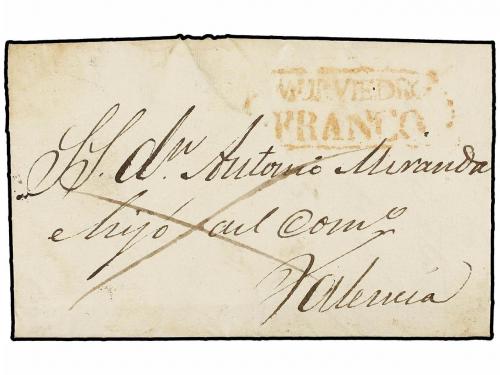 MURVIEDRO
FRANCO
SS. dn. Antonio Miranda
é hijó del Come
Valencia